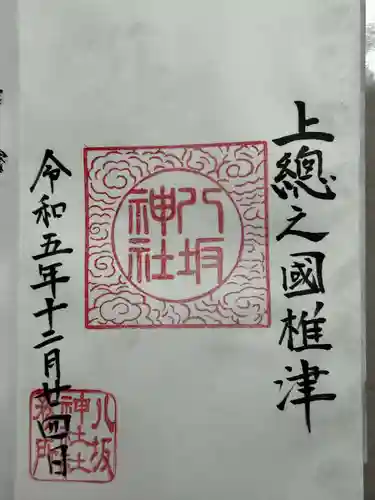 上總之國椎津
八坂
神社
令和五年十二月廿四日
八坂
神社社
務所